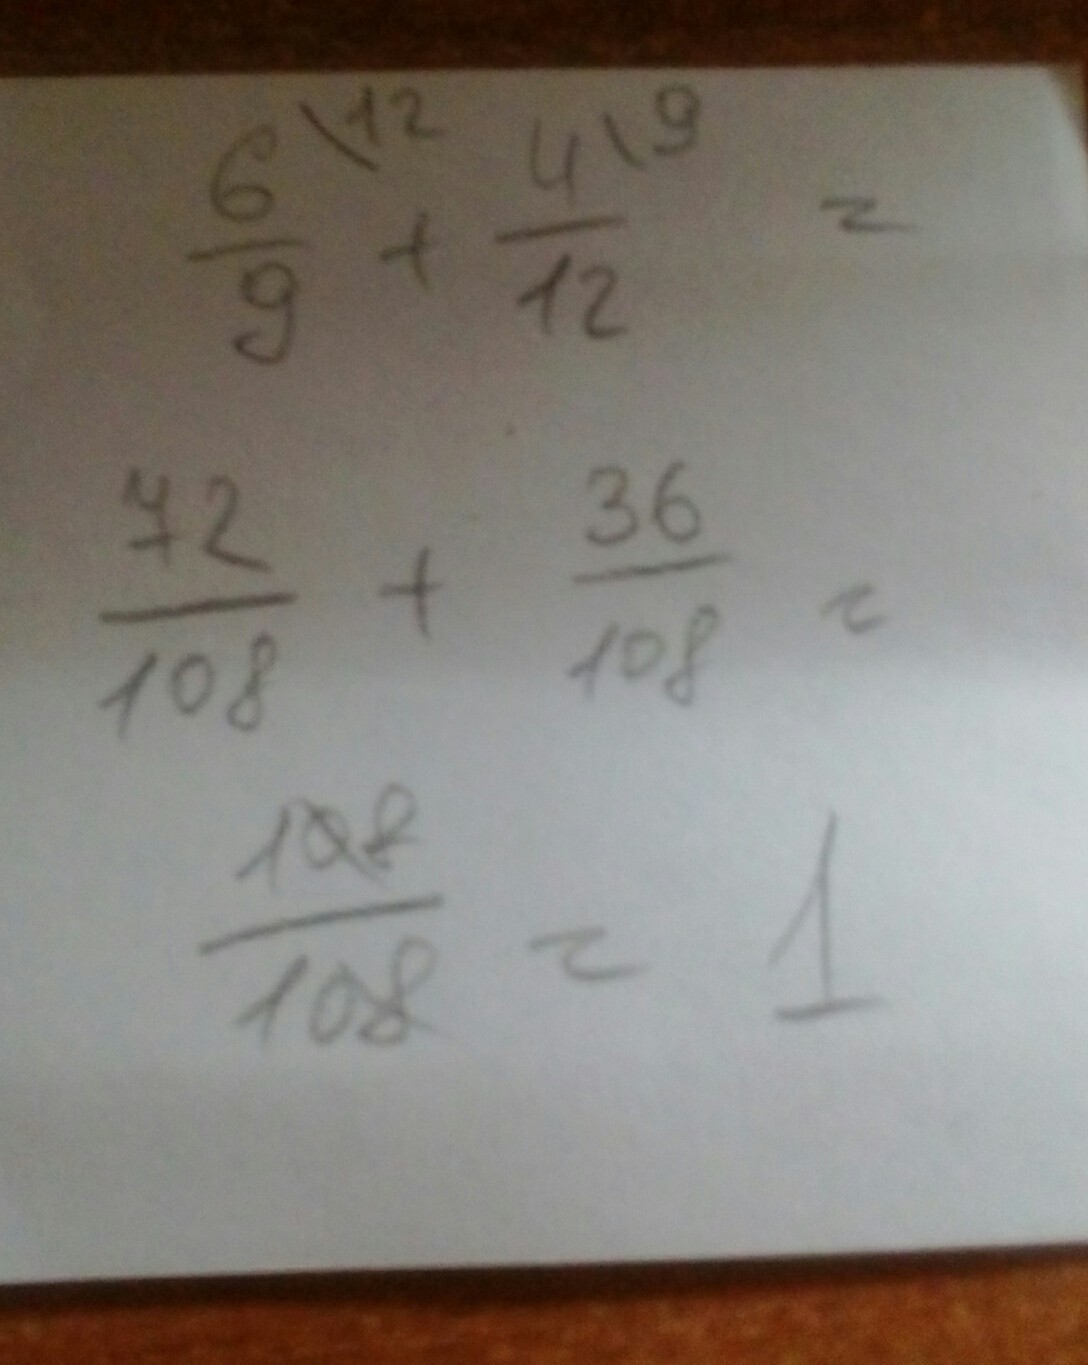 6\12/9 + 4\9/12 =
72/108 + 36/108 =
108/108 = 1